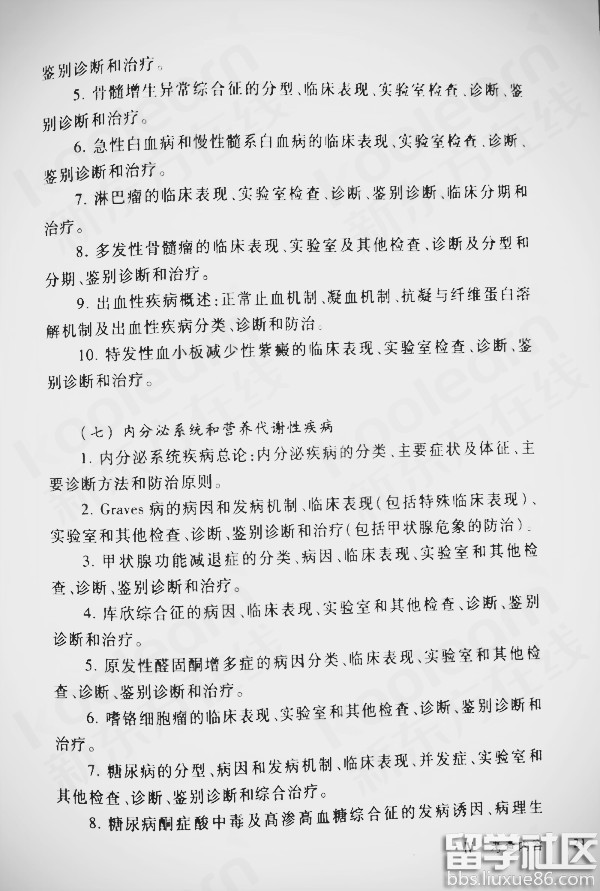 鉴别诊断和治疗。
5. 骨髓增生异常综合征的分型、临床表现、实验室检查、诊断、鉴
别诊断和治疗。
6. 急性白血病和慢性髓系白血病的临床表现、实验室检查、诊断、
鉴别诊断和治疗。
7. 淋巴瘤的临床表现、实验室检查、诊断、鉴别诊断、临床分期和
治疗。
8. 多发性骨髓瘤的临床表现、实验室及其他检查、诊断及分型和
分期、鉴别诊断和治疗。
9. 出血性疾病概述:正常止血机制、凝血机制、抗凝与纤维蛋白溶
解机制及出血性疾病分类、诊断和防治.
10. 特发性血小板减少性紫癜的临床表现、实验室检查、诊断、鉴
别诊断和治疗。
(七) 内分泌系统和营养代谢性疾病
1. 内分泌系统疾病总论:内分泌疾病的分类、主要症状及体征、主
要诊断方法和防治原则。
2. Graves 病的病因和发病机制、临床表现(包括特殊临床表现)、
实验室和其他检查、诊断、鉴别诊断和治疗(包括甲状腺危象的防治).
3. 甲状腺功能减退症的分类、病因、临床表现、实验室和其他检
查、诊断、鉴别诊断和治疗。
4. 库欣综合征的病因、临床表现、实验室和其他检查、诊断、鉴别
诊断和治疗。
5. 原发性醛固酮增多症的病因分类、临床表现、实验室和其他检
查、诊断、鉴别诊断和治疗。
6. 嗜铬细胞瘤的临床表现、实验室和其他检查、诊断、鉴别诊断和
治疗。
7. 糖尿病的分型、病因和发病机制、临床表现、并发症、实验室和
其他检查、诊断、鉴别诊断和综合治疗。
8. 糖尿病酮症酸中毒及高渗高血糖综合征的发病诱因、病理生
留学社区
bbs.liuxue86.com
koolearn
新东方在线